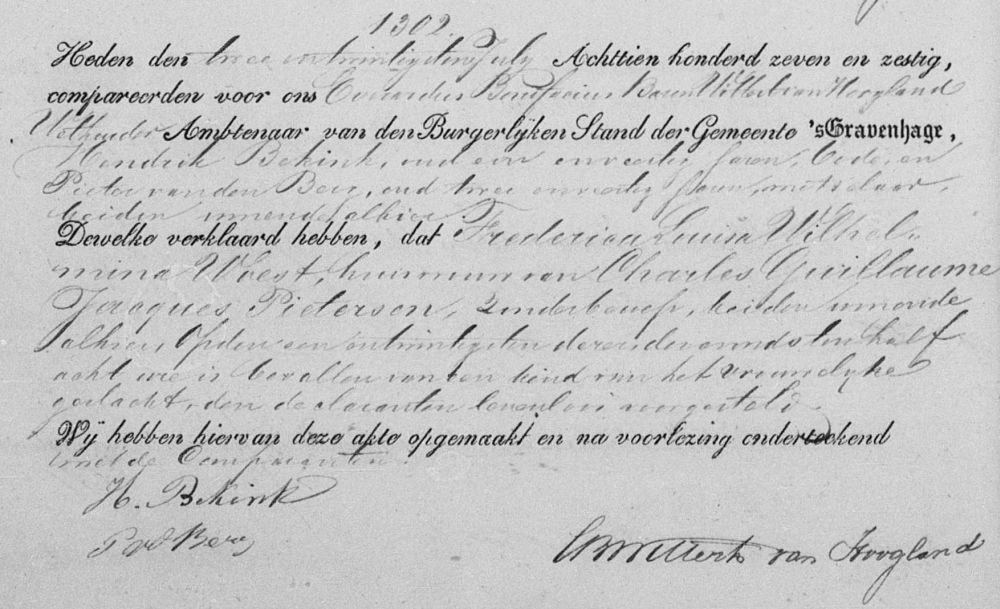 1302.
Heden den twee en twintigsten July Achttien honderd zeven en zestig,
compareerden voor ons Eduardus Bonifacius Baron Wittert van Hoogland
Wethouder Ambtenaar van den Burgerlijken Stand der Gemeente 'sGravenhage,
Hendrik Bekink, oud een en veertig Jaren, bode, en
Pieter van den Berg, oud twee en veertig Jaren, metselaar,
beiden wonende alhier
Dewelke verklaard hebben, dat Frederica Luisa Wilhel-
mina Woest, huisvrouw van Charles Guillaume
Jacques Pieterson, zonder beroep, beiden wonende
alhier, Op den een en twintigsten dezer des avonds ten half
acht ure is bevallen van een kind van het vrouwelijke
geslacht, den declaranten levenloos voorgesteld.
Wij hebben hiervan deze akte opgemaakt en na voorlezing onderteekend
met de Comparanten.
H. Bekink
PvdBerg
Wittert van Hoogland